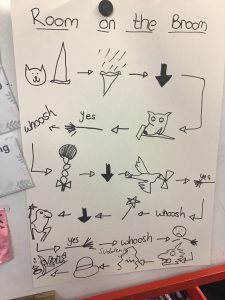 Room on the Broom
yes
whoosh
yes
whoosh
yes whoosh